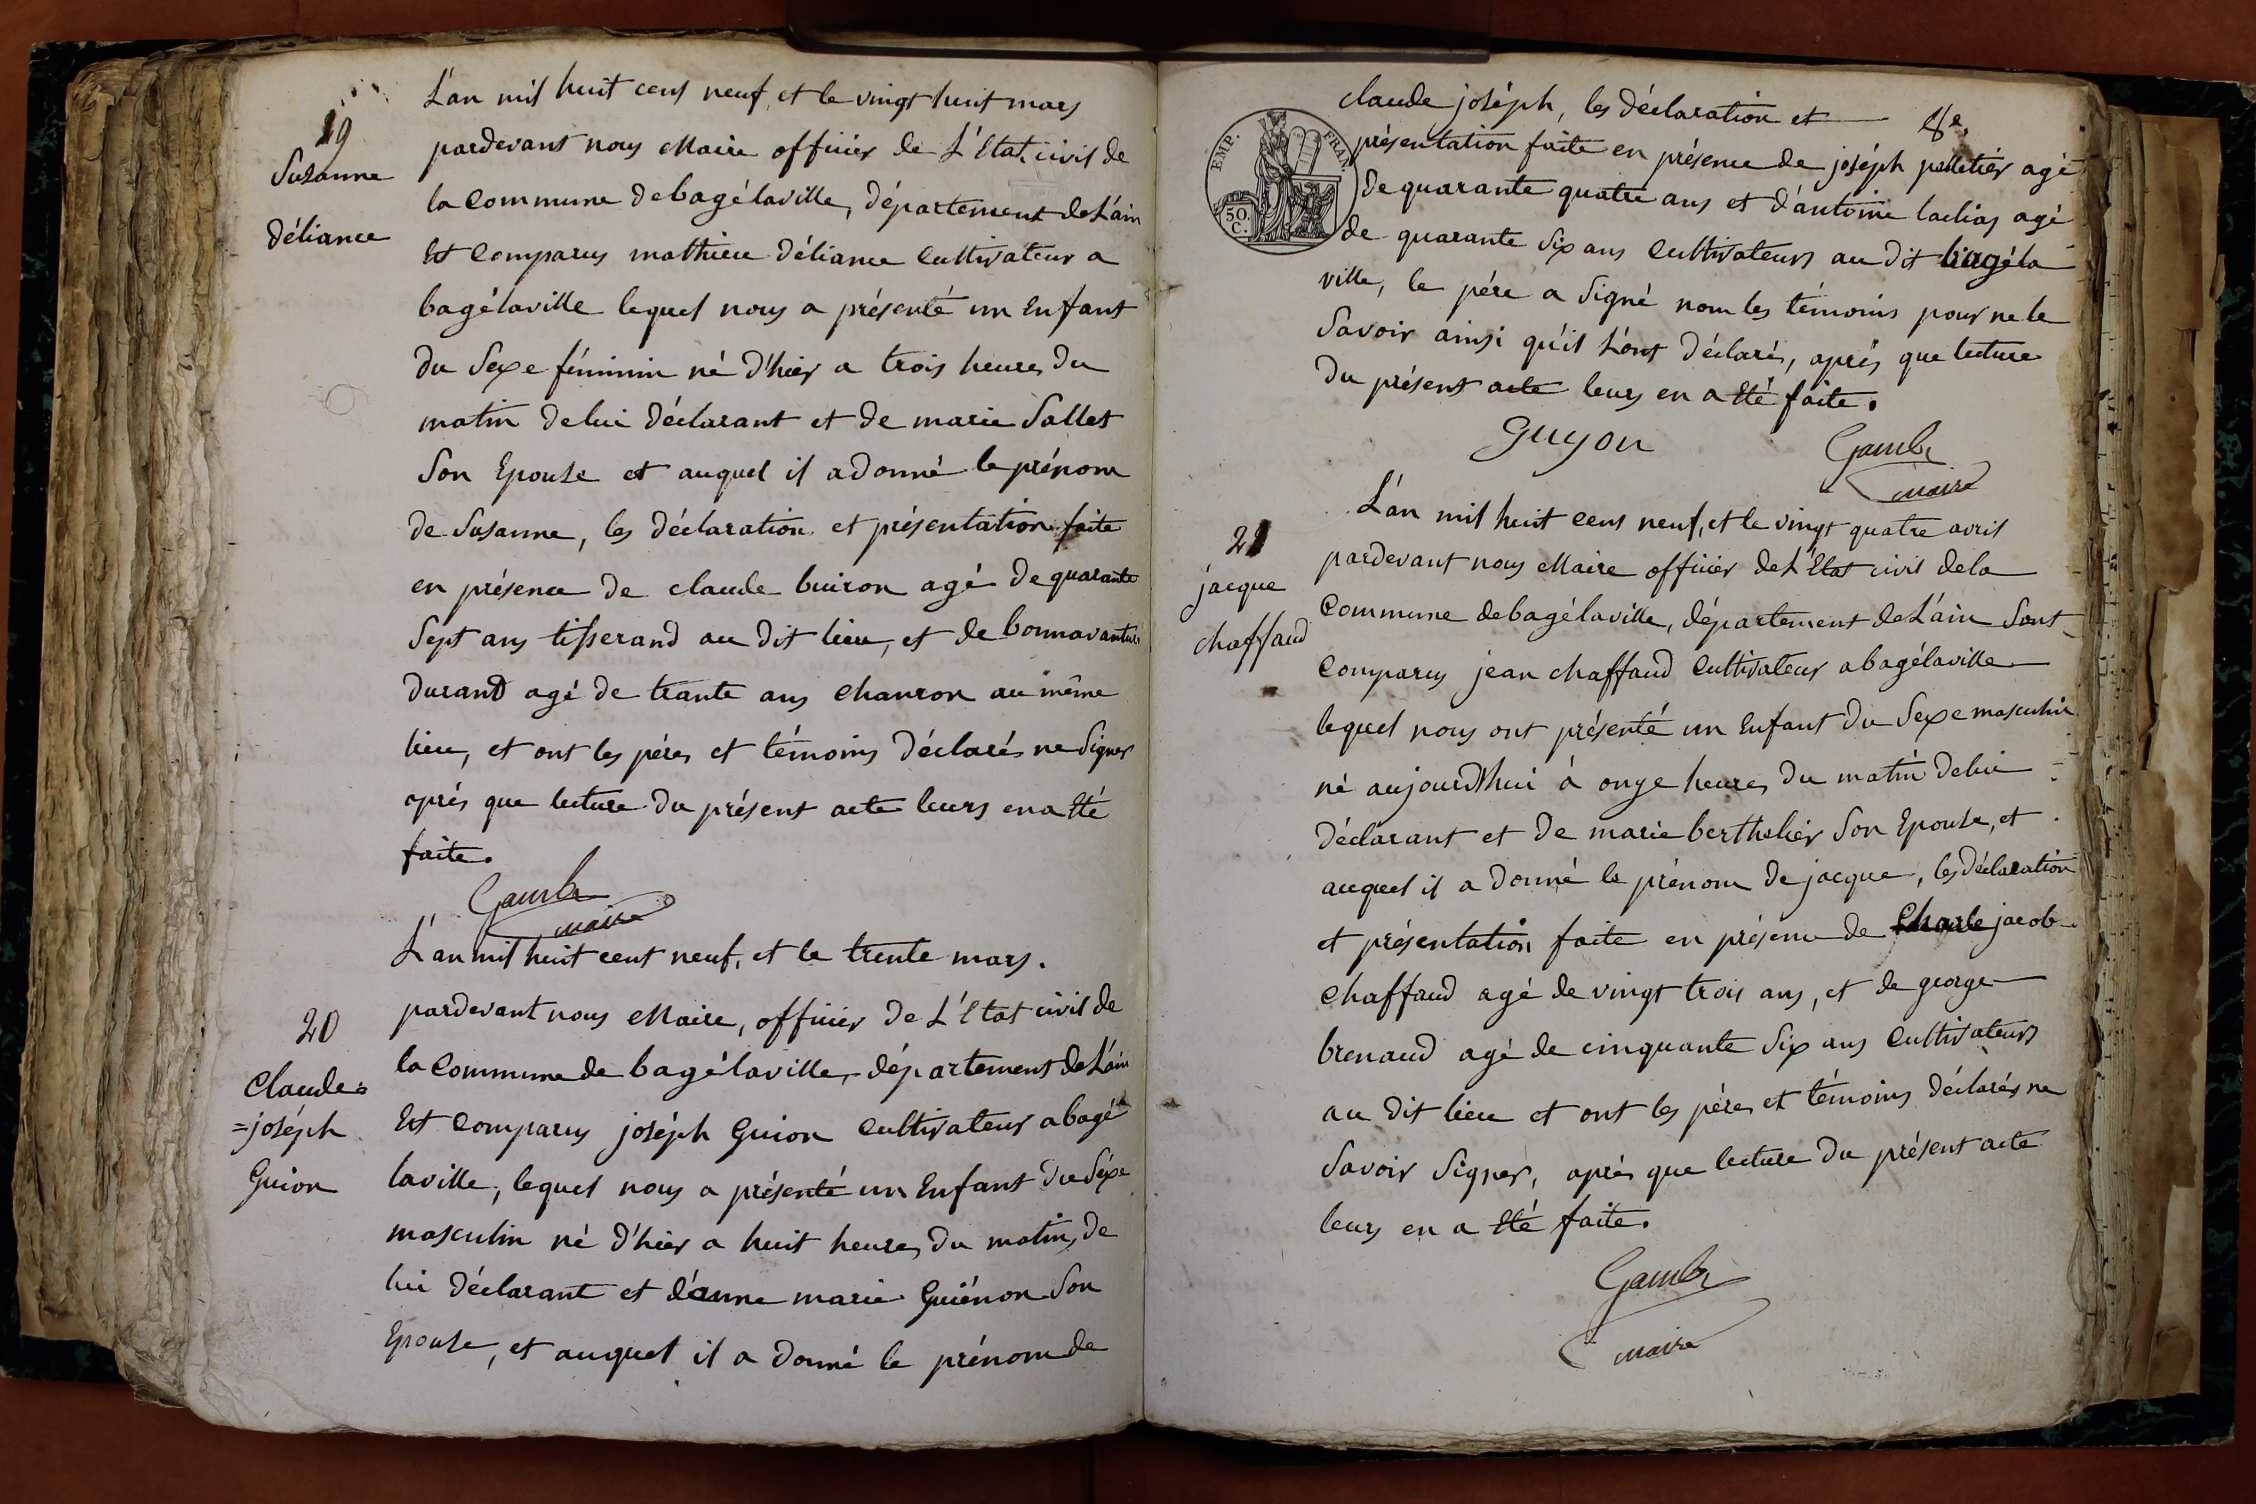 19
Suzanne
déliance
L'an mil huit cens neuf, et le vingt huit mars
pardevant nous Maire officier de L'Etat civil de
la Commune de bagélaville, département de L'ain
Est Comparus mathieu déliance Cultivateur a
bagélaville lequel nous a présenté un Enfant
du Sexe féminin né d'hier a trois heures du
matin de lui déclarant et de marie Sallet
Son Epouse et auquel il a donné le prénom
de Susanne, les déclaration et présentation faite
en présence de claude buiron agé de quarante
Sept ans tisserand au dit lieu, et de bonnavanture
durand agé de trante ans Charron au même
lieu, et ont les péres et témoins déclarés ne Signer
aprés que lecture du présent acte leurs en a Eté
faite.
Gambr
maire
20
Claude=
=joséph
Guion
L'an mil huit cent neuf, et le trente mars.
pardevant nous Maire, officier de L'Etat civil de
la Commune de bagélaville, département de L'ain
Est Comparus joséph Guion Cultivateur a bagé
laville, lequel nous a présenté un Enfant du Séxe
masculin né d'hier a huit heures du matin, de
lui déclarant et d'anne marie Guiénon Son
Epouse, et auquel il a donné le prénom de
EMP. FRAN
50.
C.
8e.
claude joséph, les déclaration et
présentation faite en présence de joséph pelletiér agé
de quarante quatre ans et d'antoine laclias agé
de quarante Six ans Cultivateurs au dit bagéla
ville, le pére a Signé non les témoins pour ne le
Savoir ainsi qu'il L'ont déclarés, aprés que lecture
du présent acte leurs en a Eté faite.
Guyon
Gambr
maire
21
jacque
chaffaud
L'an mil huit cens neuf, et le vingt quatre avril
pardevant nous Maire officier de L'Etat civil de la
Commune de bagélaville, département de L'ain Sont
Comparus jean chaffaud Cultivateur a bagélaville
lequel nous ont présenté un Enfant du Sexe masculin
né aujourd'hui à onze heures du matin de lui
déclarant et de marie berthelier Son Epouse, et
auquel il a donné le prénom de jacque, les déclaration
et présentation faite en présence de Charle jacob
Chaffaud agé de vingt trois ans, et de george
brenaud agé de cinquante Six ans Cultivateurs
au dit lieu et ont les pére et témoins déclarés ne
Savoir Signer, aprés que lecture du présent acte
leurs en a Eté faite.
Gambr
maire